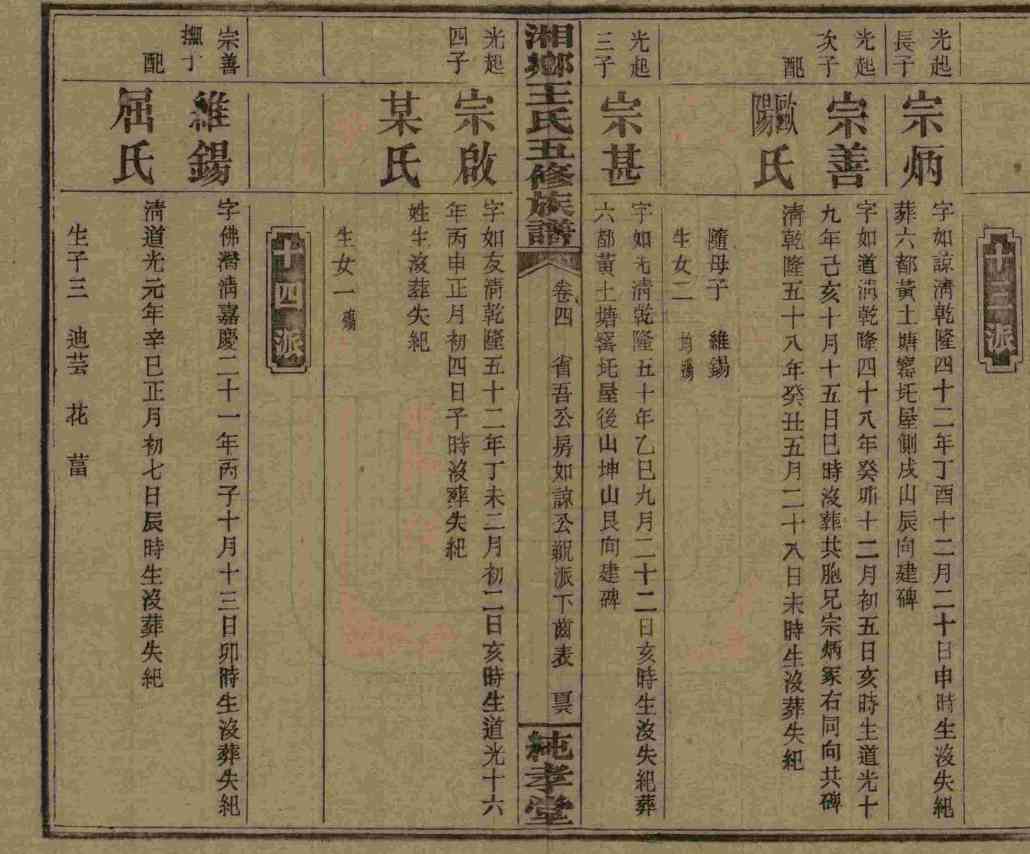 十三派
光起
長子
宗炳
字如諒清乾隆四十二年丁酉十二月二十日申時生沒失紀
葬六都黃土塘窰圫屋側戌山辰向建碑
光起
次子
宗善
字如道清乾隆四十八年癸卯十二月初五日亥時生道光十
九年己亥十月十五日巳時沒葬共胞兄宗炳冢右同向共碑
配
歐陽氏
清乾隆五十八年癸丑五月二十八日未時生沒葬失紀
隨母子 維錫
生女二 均殤
光起
三子
宗甚
字如光清乾隆五十年乙巳九月二十二日亥時生沒失紀葬
六都黃土塘窰圫屋後山坤山艮向建碑
湘鄉王氏五修族譜
卷四 省吾公房如諒公親派下齒表
純孝堂
光起
四子
宗啟
字如友清乾隆五十二年丁未二月初二日亥時生道光十六
年丙申正月初四日子時沒葬失紀
某氏
姓生沒葬失紀
生女一 殤
十四派
宗善
撫子
維錫
字佛潛清嘉慶二十一年丙子十月十三日卯時生沒葬失紀
配
屈氏
清道光元年辛巳正月初七日辰時生沒葬失紀
生子三 迪芸 花 菖